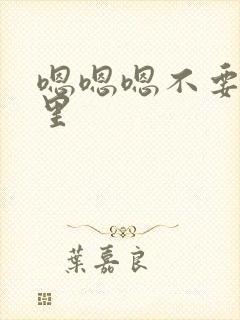 嗯嗯嗯不要
里
葉嘉良